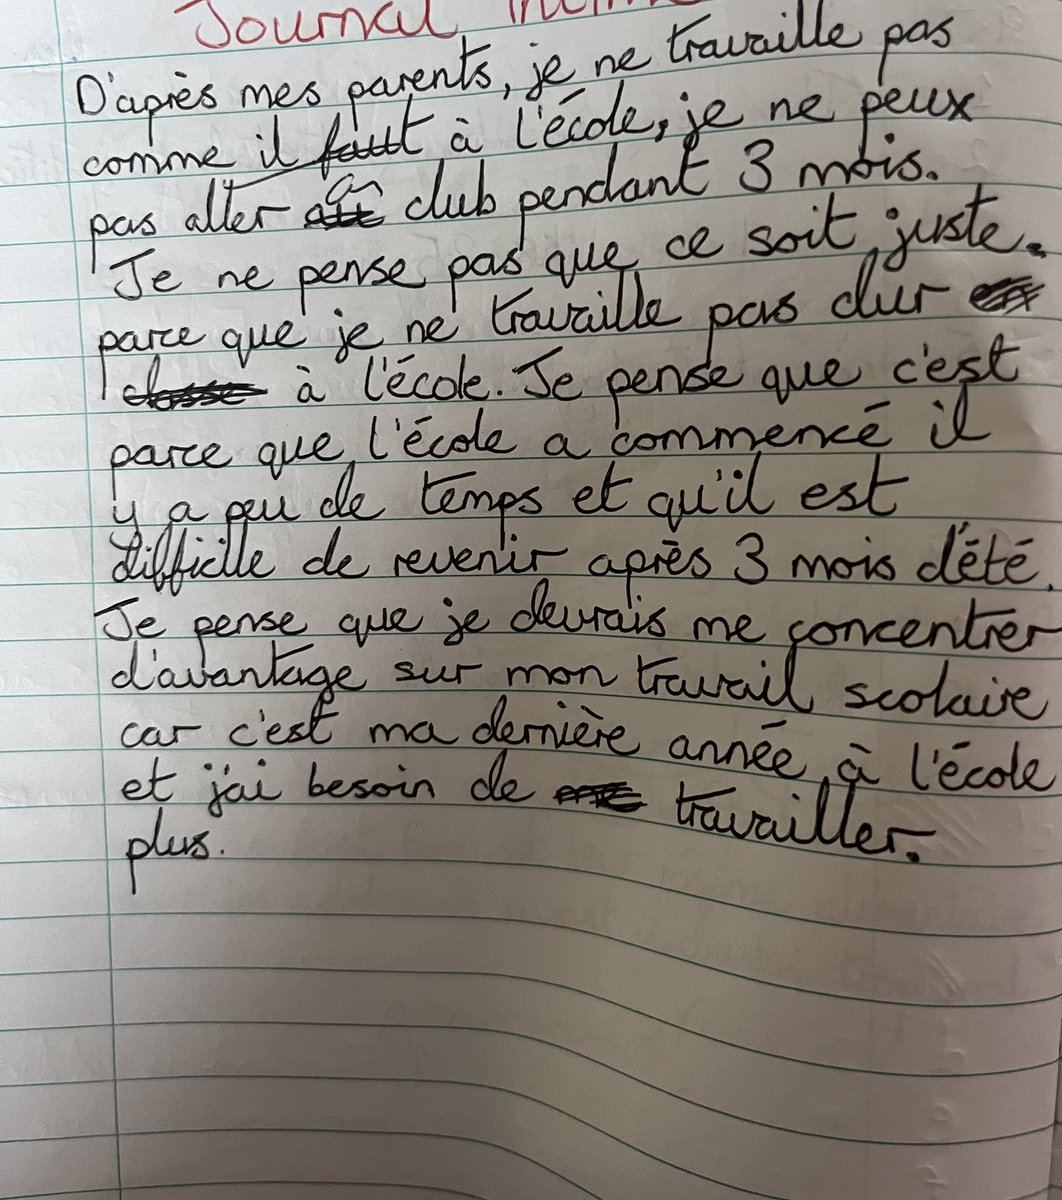 Journal
D'après mes parents, je ne travaille pas
comme il faut à l'école, je ne peux
pas aller club pendant 3 mois.
Je ne pense pas que ce soit juste.
parce que je ne travaille pas dur
à l'école. Je pense que c'est
parce que l'école a commencé il
y a peu de temps et qu'il est
difficille de revenir après 3 mois d'été.
Je pense que je devrais me concentrer
d'avantage sur mon travail scolaire
car c'est ma dernière année à l'école
et j'ai besoin de travailler.
plus.